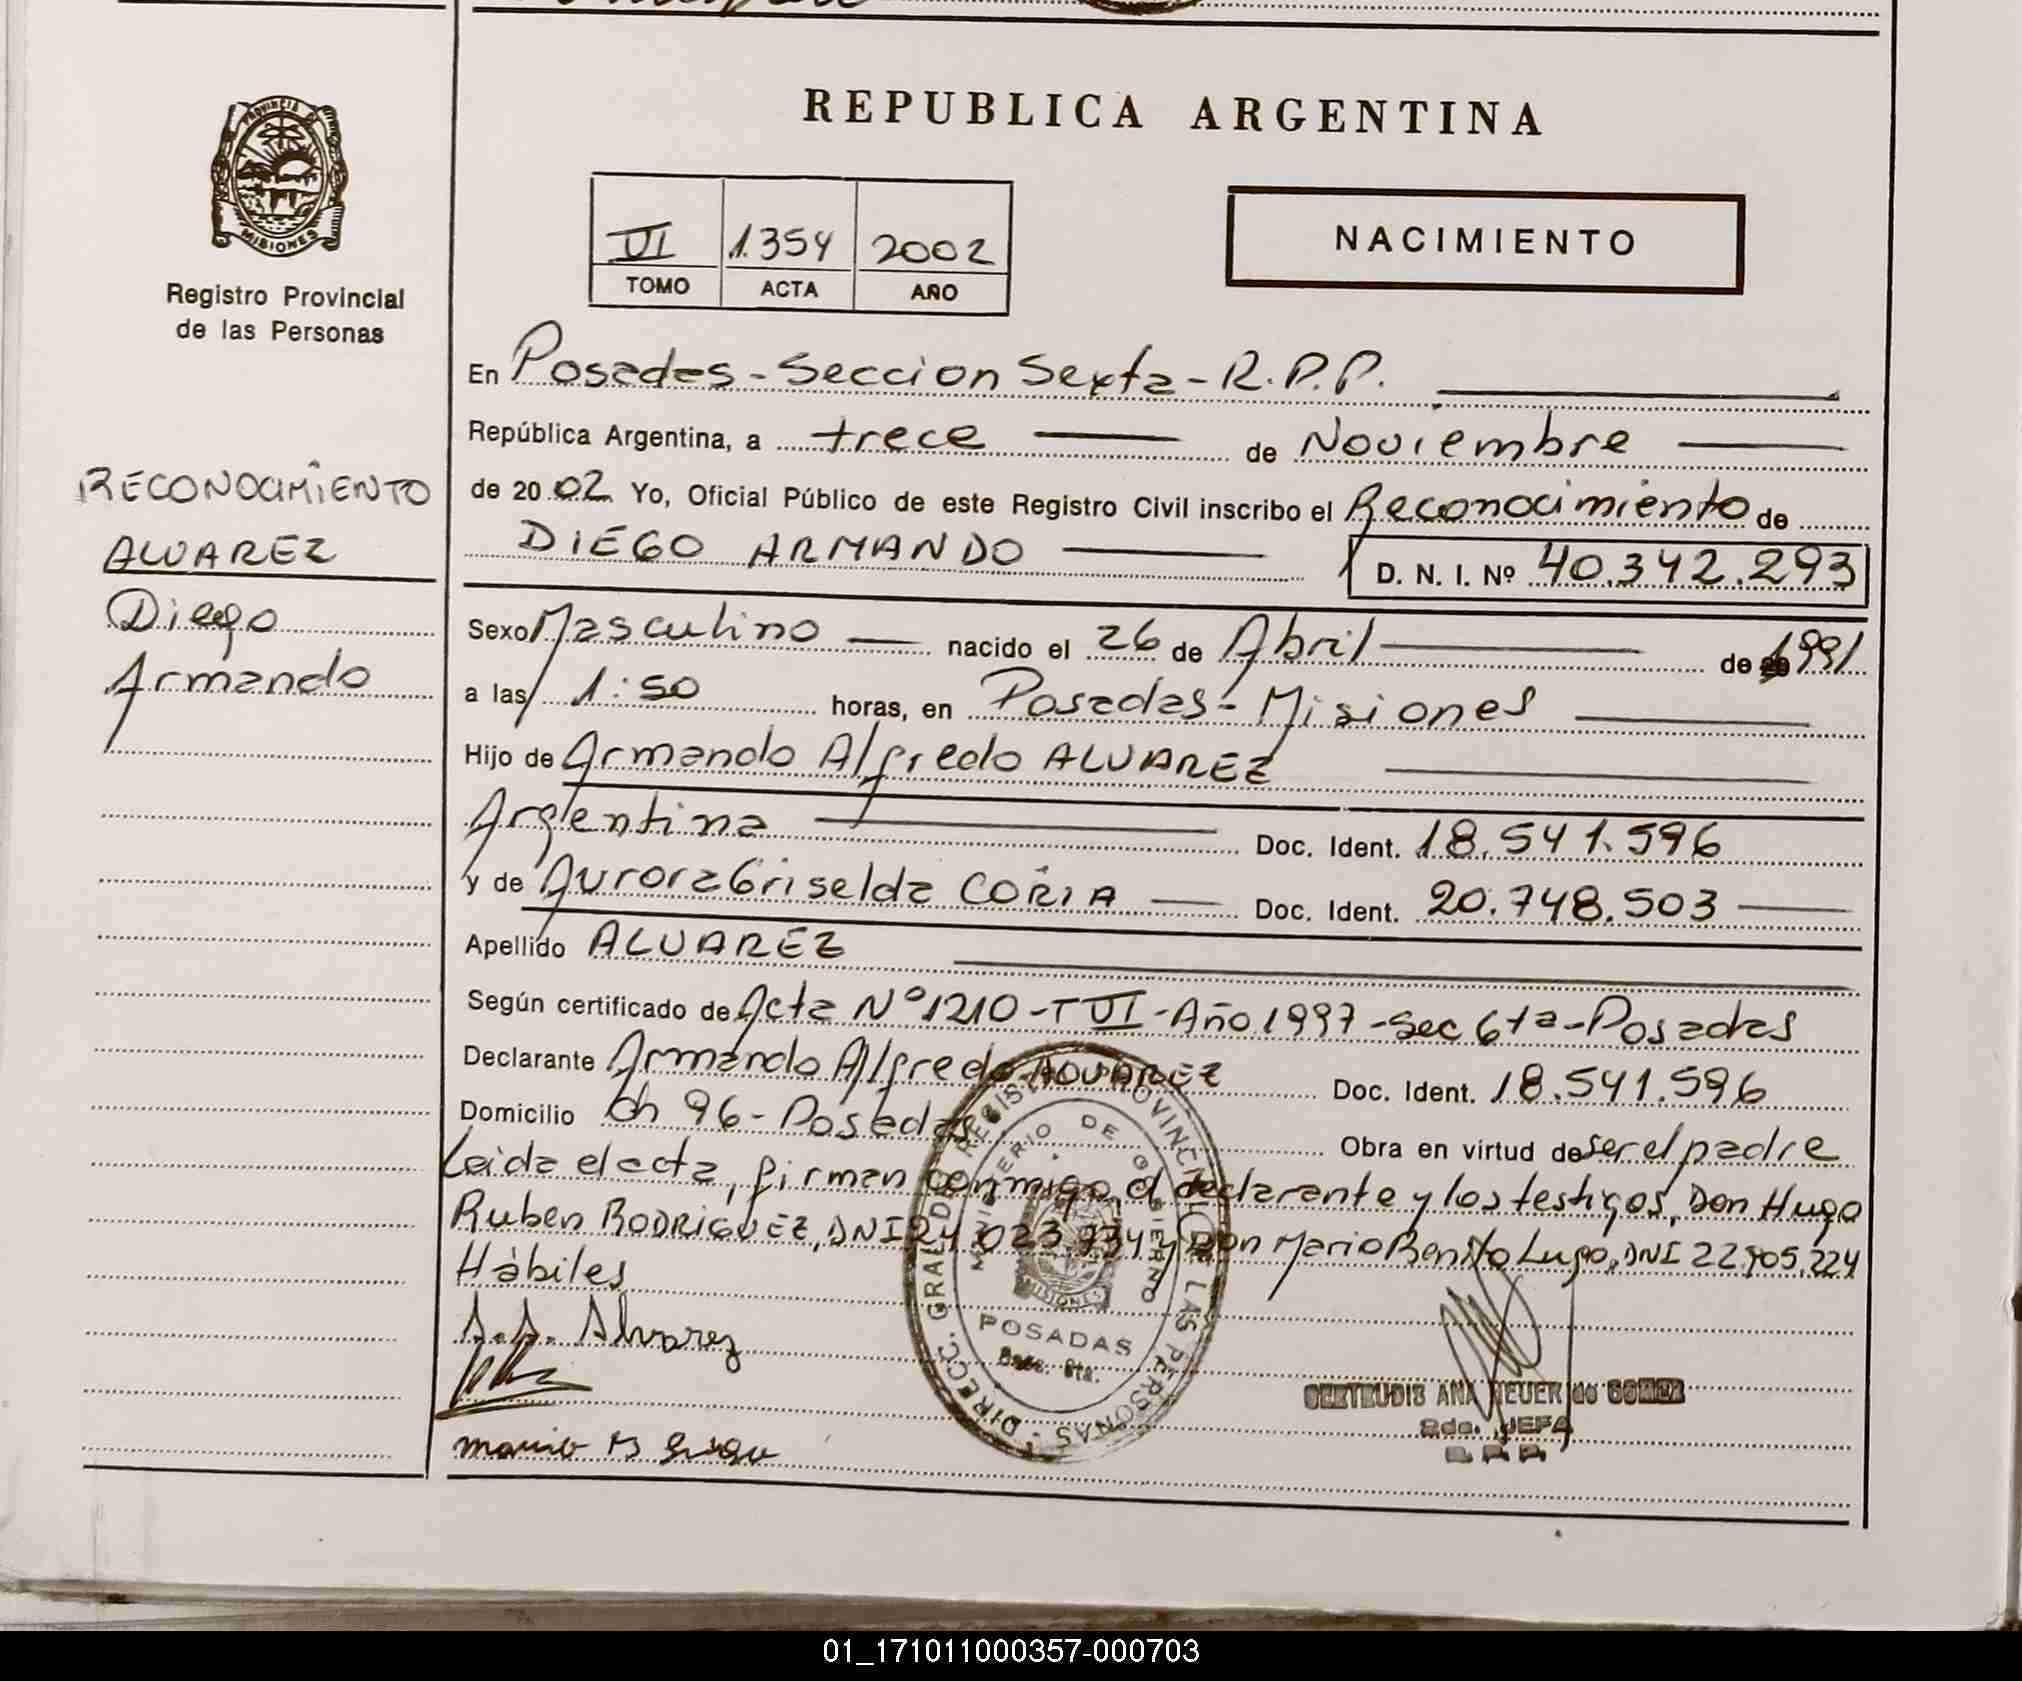 REPUBLICA ARGENTINA
PROVINCIA DE
MISIONES
Registro Provincial
de las Personas
VI 1.354 2002
TOMO ACTA AÑO
NACIMIENTO
RECONOCIMIENTO
ALVAREZ
Diego
Armando
En Posadas - Seccion Sexta - R.P.P.
República Argentina, a trece de Noviembre
de 2002 Yo, Oficial Público de este Registro Civil inscribo el Reconocimiento de
DIEGO ARMANDO D. N. I. Nº 40.342.293
Sexo Masculino nacido el 26 de Abril de 1991
a las 1:50 horas, en Posadas - Misiones
Hijo de Armando Alfredo ALVAREZ
Argentina Doc. Ident. 18.541.596
y de Aurora Griselda CORIA Doc. Ident. 20.748.503
Apellido ALVAREZ
Según certificado de Acta Nº 1210 - T VI - Año 1997 - Sec 6ta - Posadas
Declarante Armando Alfredo ALVAREZ Doc. Ident. 18.541.596
Domicilio Ch 96 - Posadas Obra en virtud de ser el padre
Leida el acta, firman conmigo el declarante y los testigos, Don Hugo
Ruben RODRIGUEZ, DNI 24.023.734 y Don Mario Benito Lugo, DNI 22.905.224
Hábiles
A.A. Alvarez
DIRECC. GRAL. DEL REGISTRO PROVINCIAL DE LAS PERSONAS
MINISTERIO DE GOBIERNO
MISIONES
POSADAS
Secc. 6ta.
GERTRUDIS ANA NEUER de GOMEZ
2da. JEFA
R P P
Mario B Lugo
01_171011000357-000703